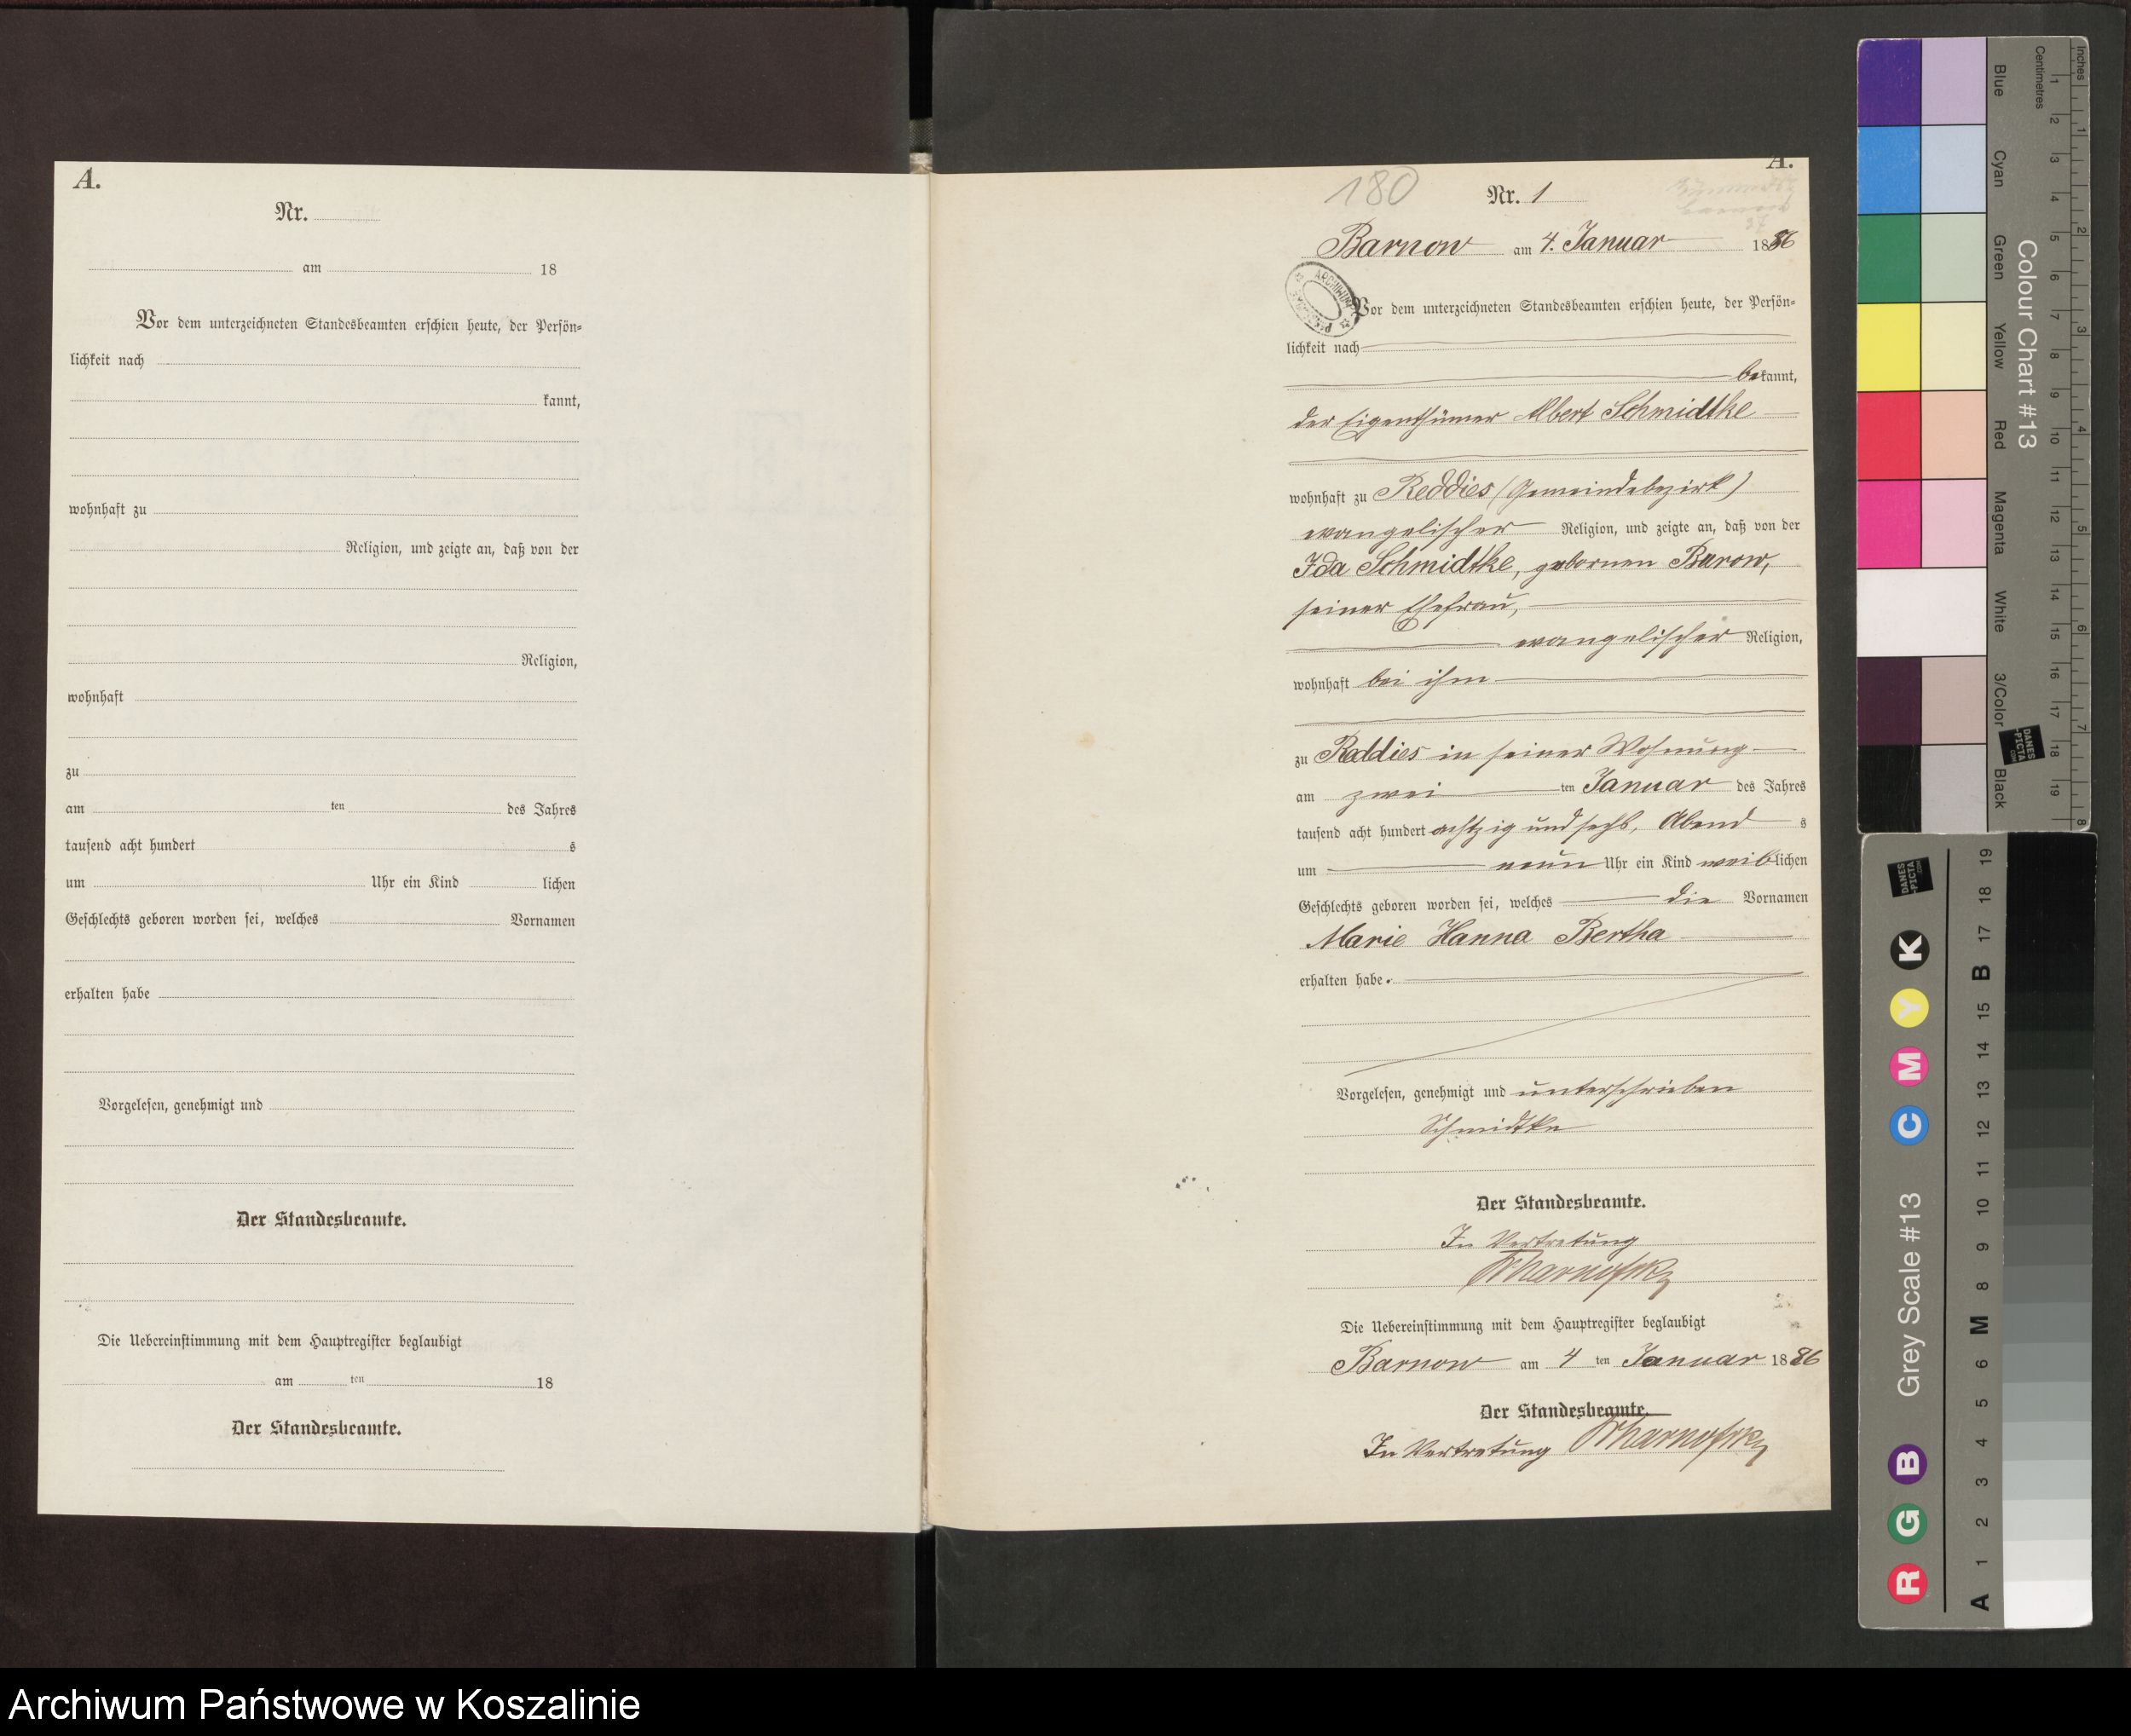 A.
Nr.
am 18
Vor dem unterzeichneten Standesbeamten erschien heute, der Persön-
lichkeit nach
kannt,
wohnhaft zu
Religion, und zeigte an, daß von der
Religion,
wohnhaft
zu
am ten des Jahres
tausend acht hundert s
um Uhr ein Kind lichen
Geschlechts geboren worden sei, welches Vornamen
erhalten habe
Vorgelesen, genehmigt und
Der Standesbeamte.
Die Uebereinstimmung mit dem Hauptregister beglaubigt
am ten 18
Der Standesbeamte.
A.
180
Nr. 1
Barnow am 4. Januar 1886
ARCHIWUM
Vor dem unterzeichneten Standesbeamten erschien heute, der Persön-
lichkeit nach
bekannt,
der Eigenthümer Albert Schmidtke
wohnhaft zu Reddies (Gemeindebezirk)
evangelischer Religion, und zeigte an, daß von der
Ida Schmidtke, gebornen Barow,
seiner Ehefrau,
evangelischer Religion,
wohnhaft bei ihm
zu Reddies in seiner Wohnung
am zwei ten Januar des Jahres
tausend acht hundert achtzig und sechs, Abend s
um neun Uhr ein Kind weiblichen
Geschlechts geboren worden sei, welches die Vornamen
Marie Hanna Bertha
erhalten habe.
Vorgelesen, genehmigt und unterschrieben
Schmidtke
Der Standesbeamte.
In Vertretung
Die Uebereinstimmung mit dem Hauptregister beglaubigt
Barnow am 4 ten Januar 1886
Der Standesbeamte.
In Vertretung
Inches
Centimetres
1 2 3 4 5 6 7 8 9 10 11 12 13 14 15 16 17 18 19
1 2 3 4 5 6 7 8
Colour Chart #13
Blue
Cyan
Green
Yellow
Red
Magenta
White
3/Color
Black
DANES
-PICTA
.COM
Grey Scale #13
R G B C M Y K
DANES
-PICTA
.COM
A 1 2 3 4 5 6 M 8 9 10 11 12 13 14 15 B 17 18 19
Archiwum Państwowe w Koszalinie